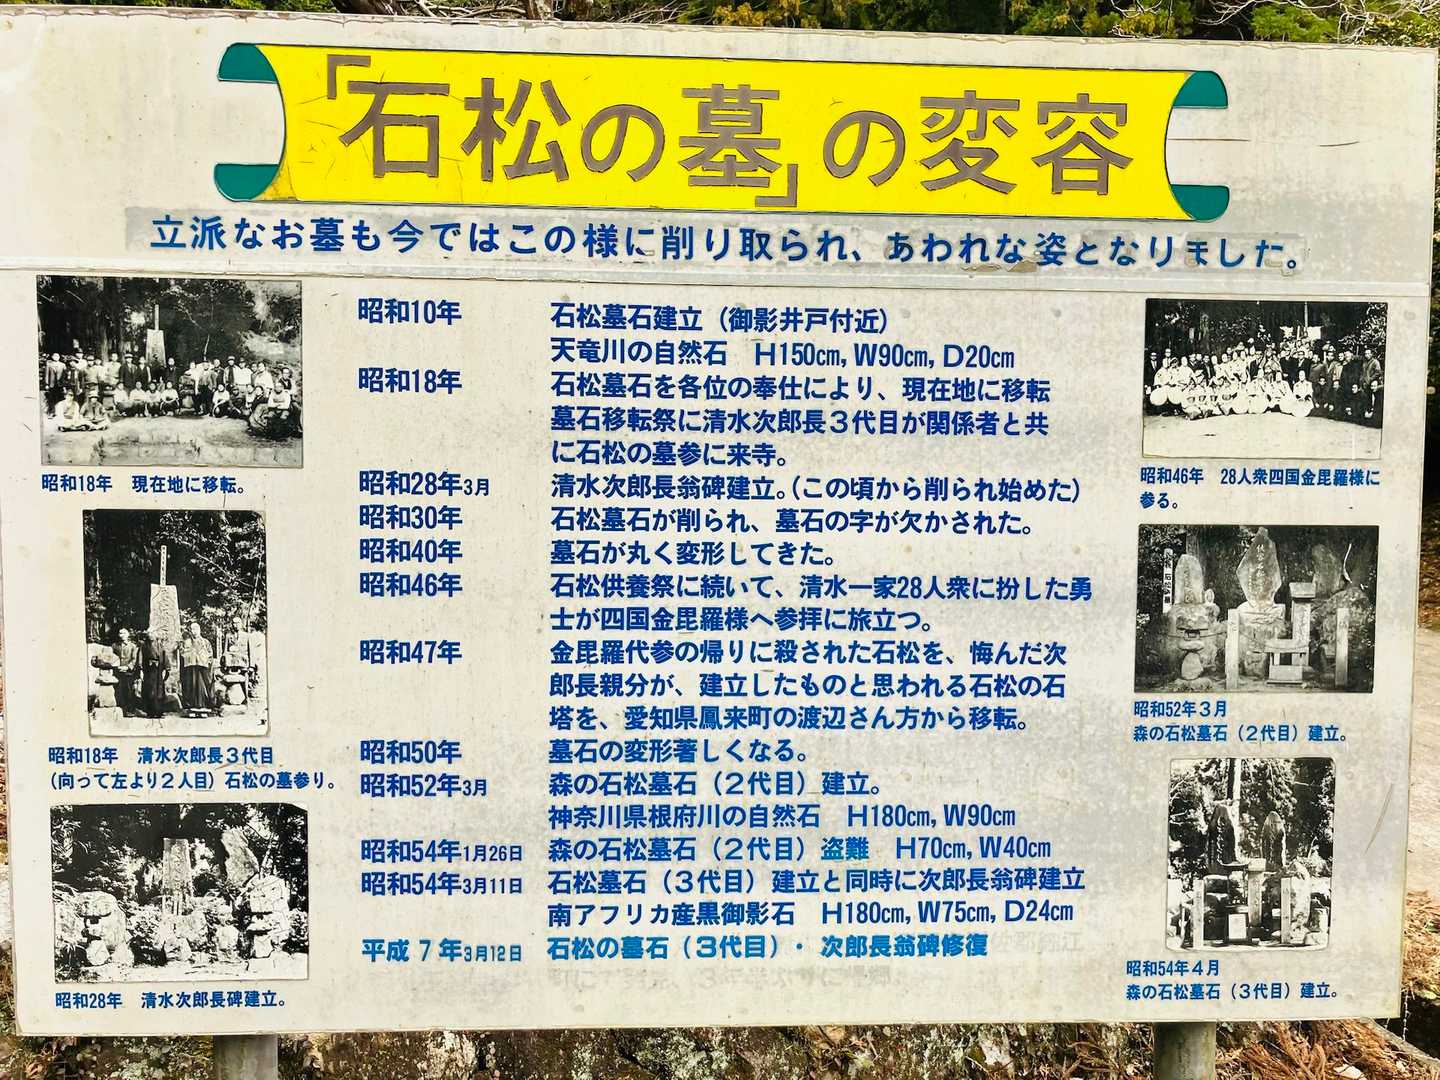 「石松の墓」の変容
立派なお墓も今ではこの様に削り取られ、あわれな姿となりました。
昭和10年 石松墓石建立（御影井戸付近）
天竜川の自然石 H150cm, W90cm, D20cm
昭和18年 石松墓石を各位の奉仕により、現在地に移転
墓石移転祭に清水次郎長３代目が関係者と共
に石松の墓参に来寺。
昭和28年3月 清水次郎長翁碑建立。（この頃から削られ始めた）
昭和30年 石松墓石が削られ、墓石の字が欠かされた。
昭和40年 墓石が丸く変形してきた。
昭和46年 石松供養祭に続いて、清水一家28人衆に扮した勇
士が四国金毘羅様へ参拝に旅立つ。
昭和47年 金毘羅代参の帰りに殺された石松を、悔んだ次
郎長親分が、建立したものと思われる石松の石
塔を、愛知県鳳来町の渡辺さん方から移転。
昭和50年 墓石の変形著しくなる。
昭和52年3月 森の石松墓石（２代目）建立。
神奈川県根府川の自然石 H180cm, W90cm
昭和54年1月26日 森の石松墓石（２代目）盗難 H70cm, W40cm
昭和54年3月11日 石松墓石（３代目）建立と同時に次郎長翁碑建立
南アフリカ産黒御影石 H180cm, W75cm, D24cm
平成７年3月12日 石松の墓石（３代目）・次郎長翁碑修復
昭和18年 現在地に移転。
昭和18年 清水次郎長３代目
（向って左より２人目）石松の墓参り。
昭和28年 清水次郎長碑建立。
昭和46年 28人衆四国金毘羅様に
参る。
昭和52年３月
森の石松墓石（２代目）建立。
昭和54年４月
森の石松墓石（３代目）建立。